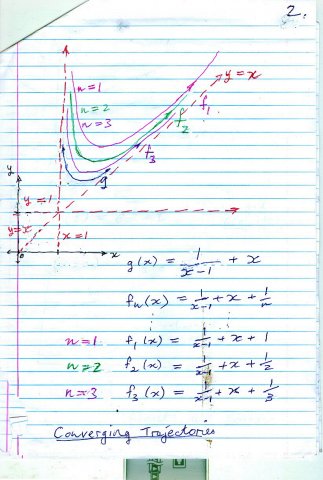 2.
y = x
n = 1
n = 2
n = 3
f₁
f₂
f₃
g
y
y = 1
y = x
x = 1
0
x
g(x) = 1/(x-1) + x
fₙ(x) = 1/(x-1) + x + 1/n
n = 1 f₁(x) = 1/(x-1) + x + 1
n = 2 f₂(x) = 1/(x-1) + x + 1/2
n = 3 f₃(x) = 1/(x-1) + x + 1/3
Converging Trajectories